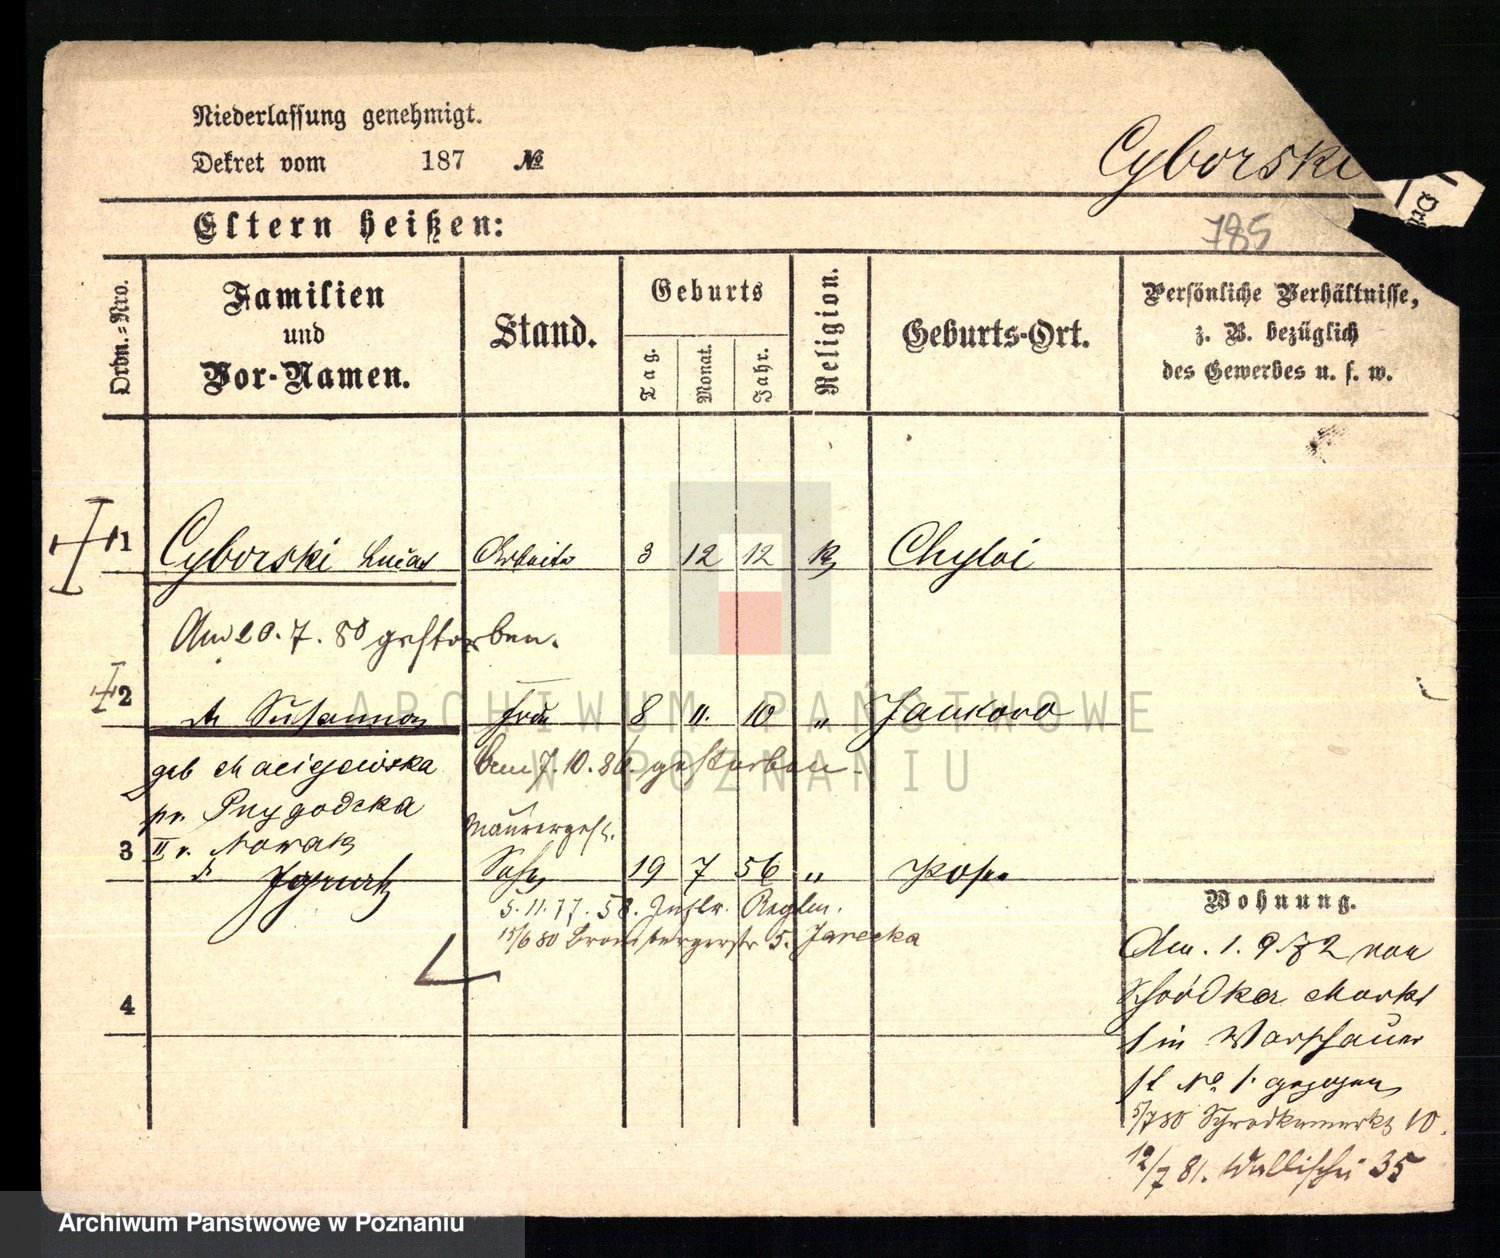 Niederlassung genehmigt.
Dekret vom 187 №
Cyborski
Eltern heißen:
785
Ordn.=Nro.
Familien und Vor-Namen.
Stand.
Geburts
Tag.
Monat.
Jahr.
Religion.
Geburts-Ort.
Persönliche Verhältnisse,
z. B. bezüglich
des Gewerbes u. s. w.
1 Cyborski Lucas Arbeiter 3 12 12 K Chyloi
Am 20. 7. 80 gestorben.
2 Susanna Frau 8 11. 10 „ Jankowo
geb Maciejewska Am 7. 10. 86. gestorben.
pr. Przygodzka
Maurerges.
3 II v. Nowak
Sohn 19 7 56 „ Posen
5. 11. 77. 58. Inftr. Regim.
15/6 80 Brombergerstr 5. Jarecka
4
Wohnung.
Am. 1. 9. 72 von
Schrodka Markt
1 in Warschauer
st No 1. gezogen
5/7 80 Schrodkamarkt 10.
12/7 81. Wallischei 35
ARCHIWUM PAŃSTWOWE
W POZNANIU
Archiwum Państwowe w Poznaniu